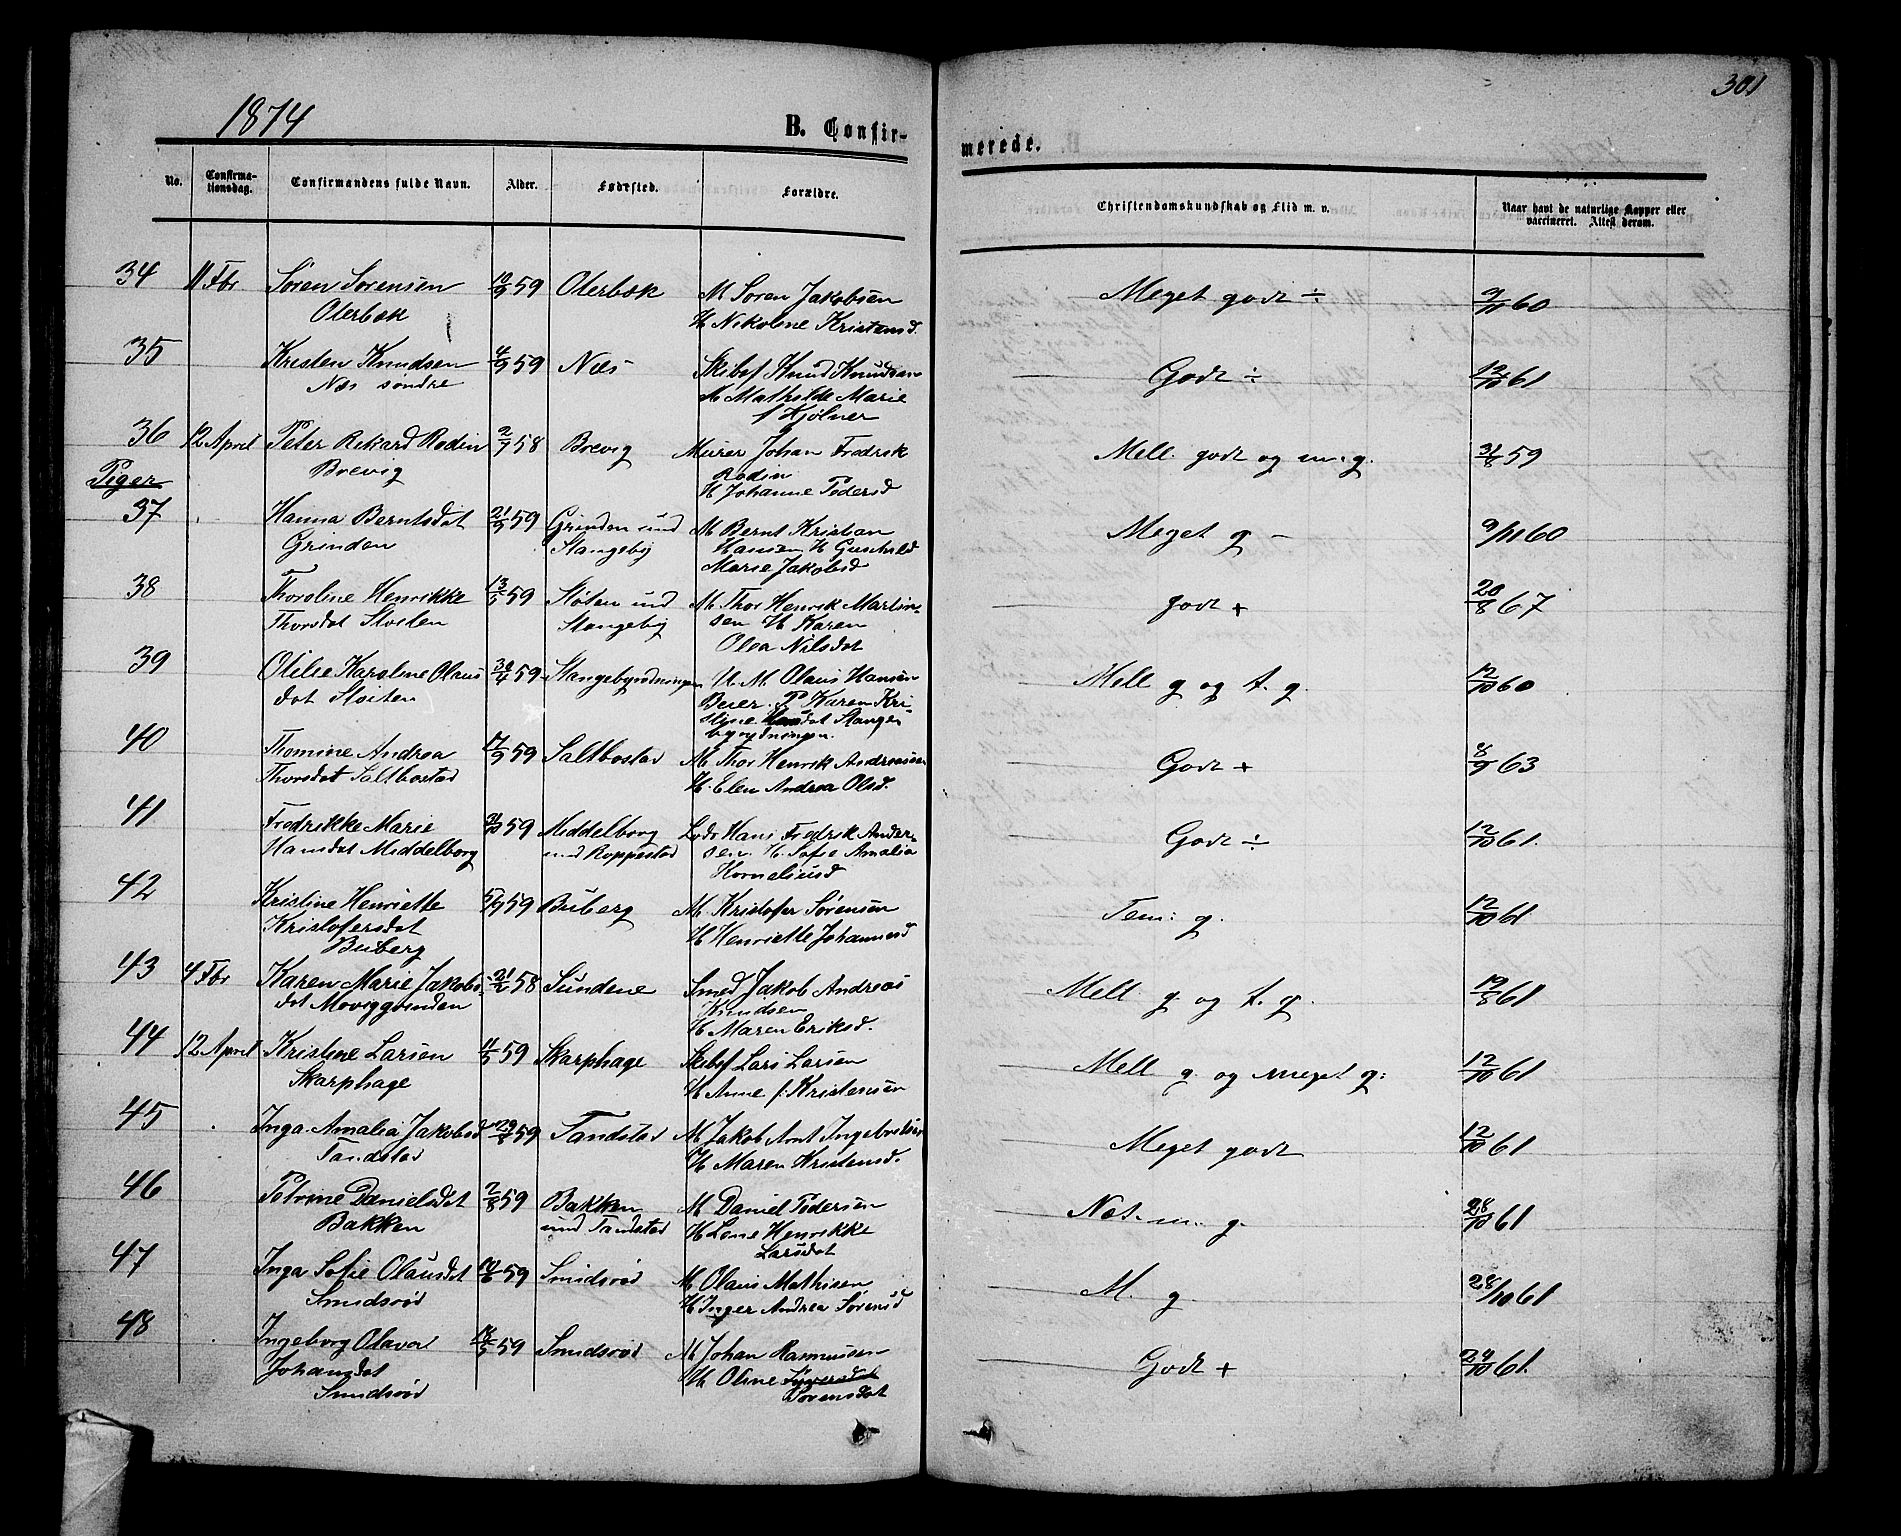 301
1874
B. Confir-
merede.
No.
Confirma-
tionsdag.
Confirmandens fulde Navn.
Alder.
Fødested.
Forældre.
Christendomskundskab og Flid m. v.
Naar havt de naturlige Kopper eller
vaccineret. Attest derom.
34 11 Fbr Søren Sørensen 10/9 59 Oterbæk M Søren Jakobsen Meget godt ÷ 9/11 60
Oterbæk H Nikoline Kristensd.
35 Kristen Knudsen 4/9 59 Næs Skibsf Knud Knudsen Godt ÷ 12/10 61
Næs søndre M Mathilde Marie
f Kjølner
36 12 April Peter Rikard Rodin 2/7 58 Brevig Murer Johan Fredrik Mell. godt og m. g. 31/8 59
Brevig Rodin
H Johanne Pedersd
Piger
37 Hanna Berntsdat 21/9 59 Grinden und M Bernt Kristian Meget g - 9/11 60
Grinden Stangeby Hansen H Gunhild
Marie Jakobsd
38 Thoroline Henrikke 13/5 59 Sløten und M Thor Henrik Martin- godt + 20/8 67
Thorsdat Sloiten Stangeby sen H Karen
Olea Nilsdat
39 Otilie Karoline Olaus 30/4 59 Stangebyrødningen U. M. Olaus Hansen Mell g og t. g. 12/10 60
dat Sloiten Beier. P Karen Kri-
stine dat Stange
byrydningen.
40 Thomine Andrea 17/9 59 Saltbostad M. Thor Henrik Andreassen Godt + 8/9 63
Thorsdat Saltbostad H. Elen Andrea Olsd.
41 Fredrikke Marie 31/10 59 Middelborg Lods Hans Fredrik Ander- Godt ÷ 12/10 61.
Hansdat Middelborg und Roppestad sen. H. Sofie Amalia
Korneliusd
42 Kristine Henriette 5/9 59 Buberg M Kristofer Sørensen Tem: g. 12/10 61
Kristofersdat H Henriette Johannesd
Buberg
43 4 Fbr Karen Marie Jakobs- 21/2 58 Sundene Smed Jakob Andreas Mell g. og t. g. 19/8 61
dat Moviggrinden Knudsen
H Maren Eriksd.
44 12 April Kristine Larsen 11/5 59 Skarphage Skibsf Lars Larsen Mell g. og meget g: 12/10 61
Skarphage H Anne f. Kristensen
45 Inga Amalia Jakobsd 29/8 59 Tandstad M Jakob Arnt Ingebretsen Meget godt 12/10 61
Tandstad H Maren Kristensd.
46 Petrine Danielsdat 7/8 59 Bakken M Daniel Pedersen Næst. m. g. 28/10 61
Bakken und Tandstad H Lene Henrikke
Larsdat
47 Inga Sofie Olausdat 10/6 59 Smidsrød M Olaus Mathisen M. g. 28/10 61
Smidsrød H Inger Andrea Sørensd
48 Ingeborg Olava 18/5 59 Smidsrød M Johan Rasmussen Godt + 24/10 61.
Johansdat H Oline
Smidsrød Sørensdat